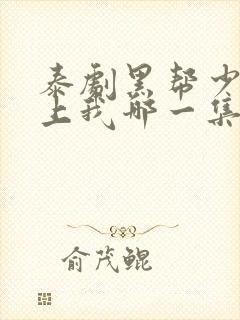 泰劇黑帮少
上我那一集
俞茂鲲